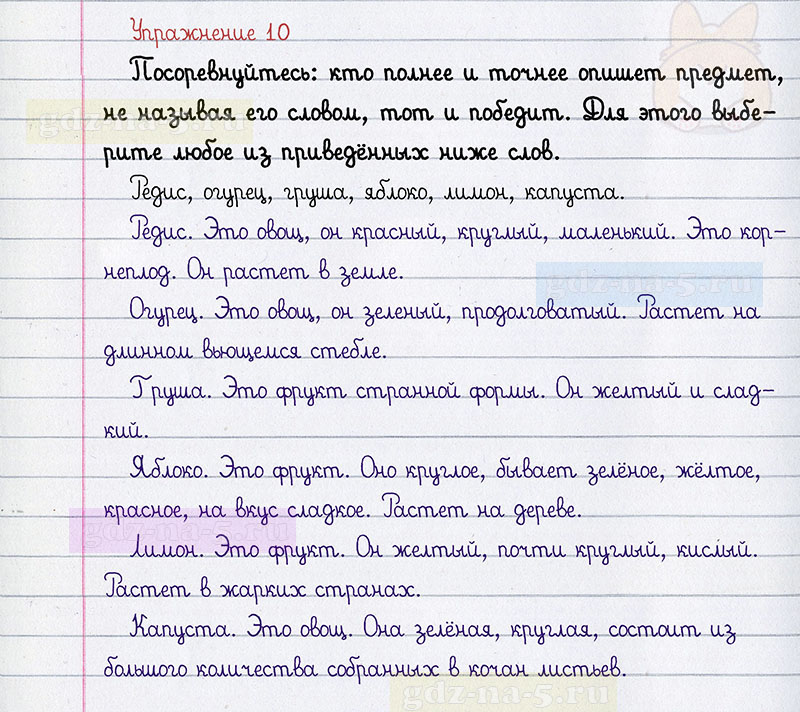 Упражнение 10
Посоревнуйтесь: кто полнее и точнее опишет предмет,
gdz-na-5.ru
не называя его словом, тот и победит. Для этого выбе-
рите любое из приведённых ниже слов.
Редис, огурец, груша, яблоко, лимон, капуста.
Редис. Это овощ, он красный, круглый, маленький. Это кор-
неплод. Он растет в земле.
gdz-na-5.ru
Огурец. Это овощ, он зеленый, продолговатый. Растет на
длинном вьющемся стебле.
Груша. Это фрукт странной формы. Он желтый и слад-
кий.
Яблоко. Это фрукт. Оно круглое, бывает зелёное, жёлтое,
красное, на вкус сладкое. Растет на дереве.
gdz-na-5.ru
Лимон. Это фрукт. Он желтый, почти круглый, кислый.
Растет в жарких странах.
Капуста. Это овощ. Она зелёная, круглая, состоит из
большого количества собранных в кочан листьев.
gdz-na-5.ru